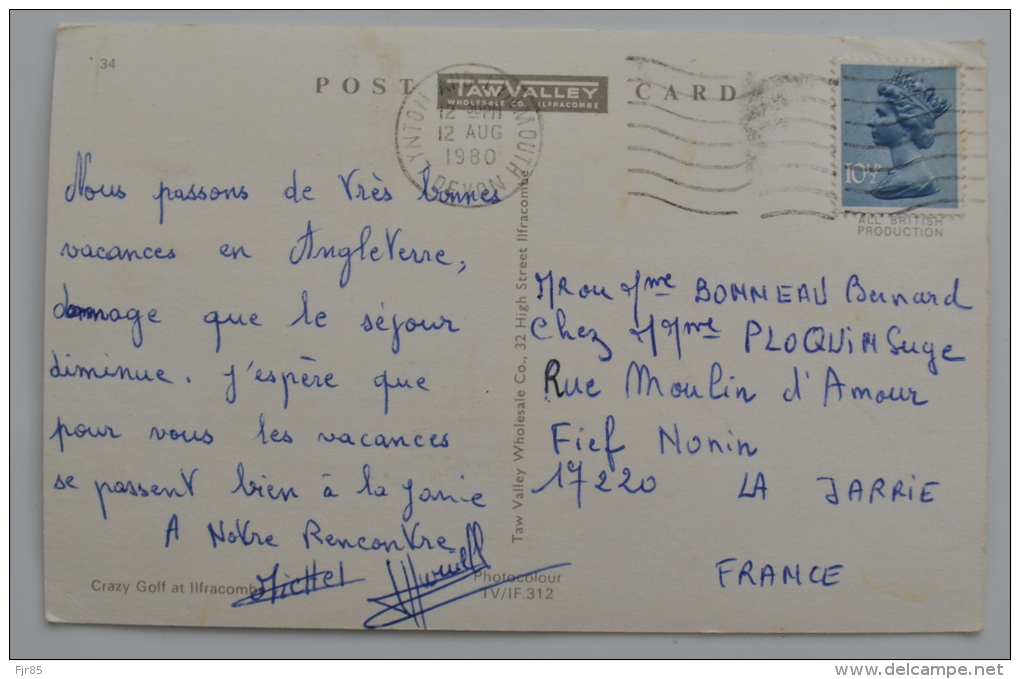 34
POST CARD
TAW VALLEY
WHOLESALE CO., ILFRACOMBE
LYNTON AND LYNMOUTH
12 AUG
1980
DEVON
10½P
ALL BRITISH
PRODUCTION
Nous passons de très bonnes
vacances en Angleterre,
dommage que le séjour
diminue. J'espère que
pour vous les vacances
se passent bien à la Jarrie
A Notre Rencontre
Michel Muriell
Crazy Golf at Ilfracombe
Photocolour
TV/IF.312
Taw Valley Wholesale Co., 32 High Street Ilfracombe
MR ou Mme BONNEAU Bernard
Chez Mme PLOQUIN Serge
Rue Moulin d'Amour
Fief Nonin
17220 LA JARRIE
FRANCE
Fjr85
www.delcampe.net